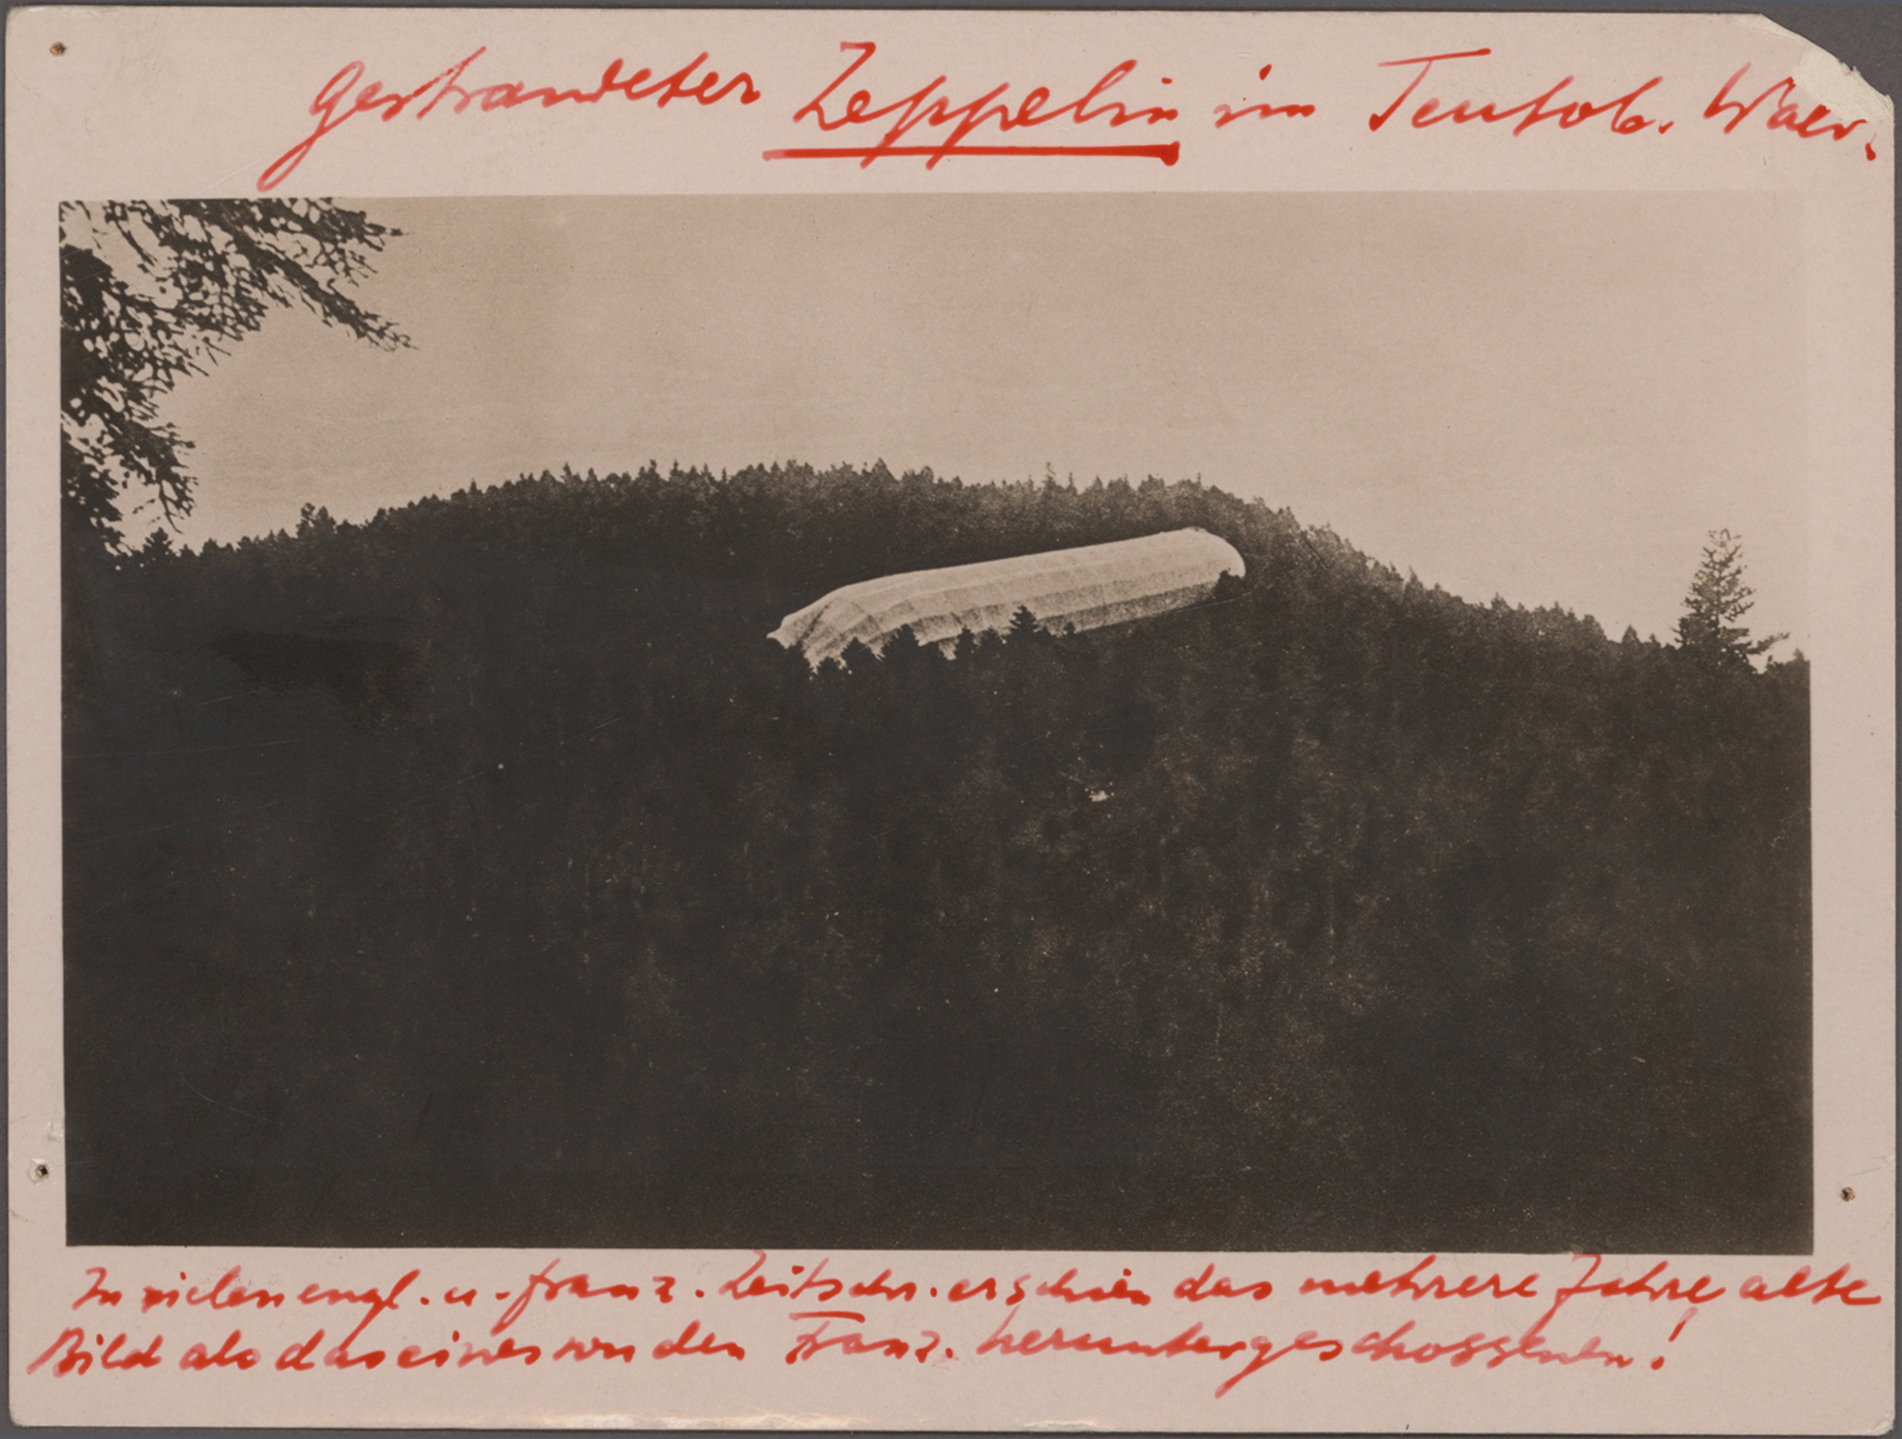 Gestrandeter Zeppelin im Teutob. Wald.
In vielen engl. u. franz. Zeitschr. erschien das mehrere Jahre alte
Bild als das eines von den Franz. heruntergeschossenen!